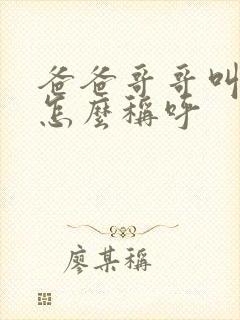 爸爸哥哥叫
怎麼稱呼
廖某稱